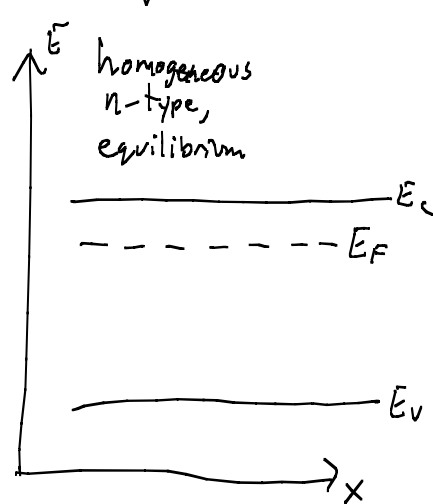 E
homogeneous
n-type,
equilibrium
E_c
E_F
E_v
x